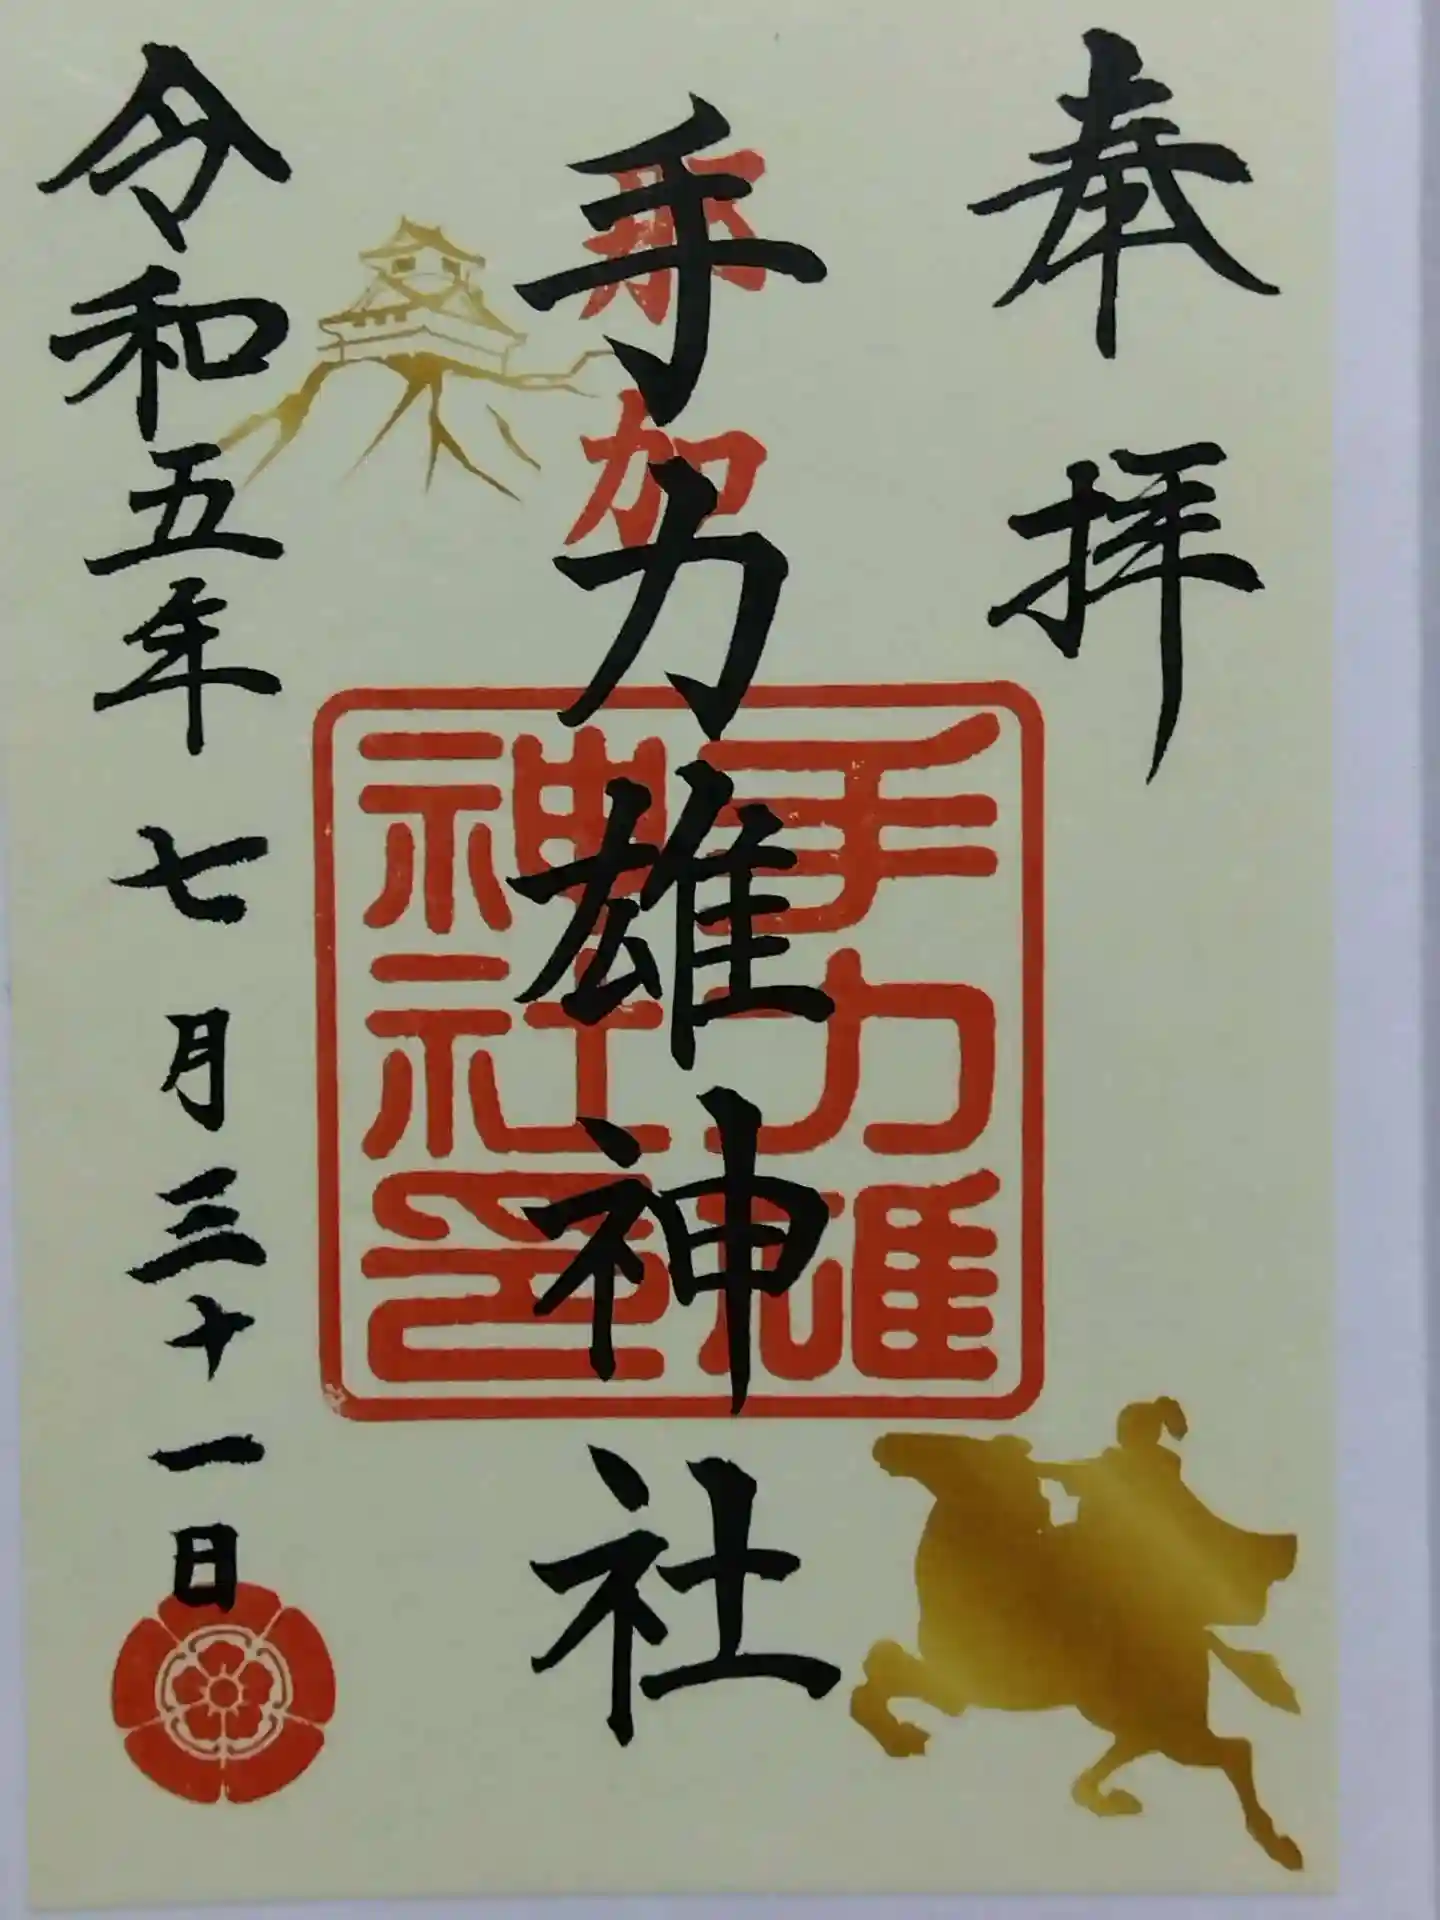 奉拝
那加
手力雄神社
手力雄
神社印
令和五年七月三十一日